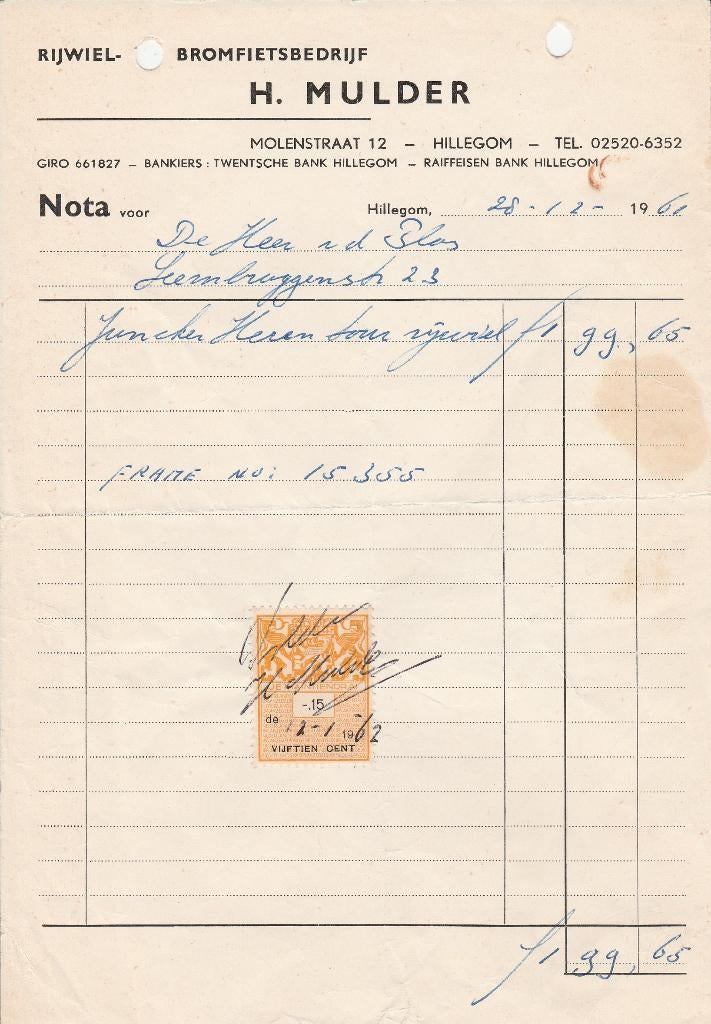 RIJWIEL- BROMFIETSBEDRIJF
H. MULDER
MOLENSTRAAT 12 — HILLEGOM — TEL. 02520-6352
GIRO 661827 — BANKIERS : TWENTSCHE BANK HILLEGOM — RAIFFEISEN BANK HILLEGOM
Nota voor Hillegom, 28-12-1961
De Heer v d
23
Juncker Heren tour rijwiel f 199,65
FRAME NO: 15355
Voldaan
H Mulder
-.15
de 12-1 1962
VIJFTIEN CENT
f 199,65